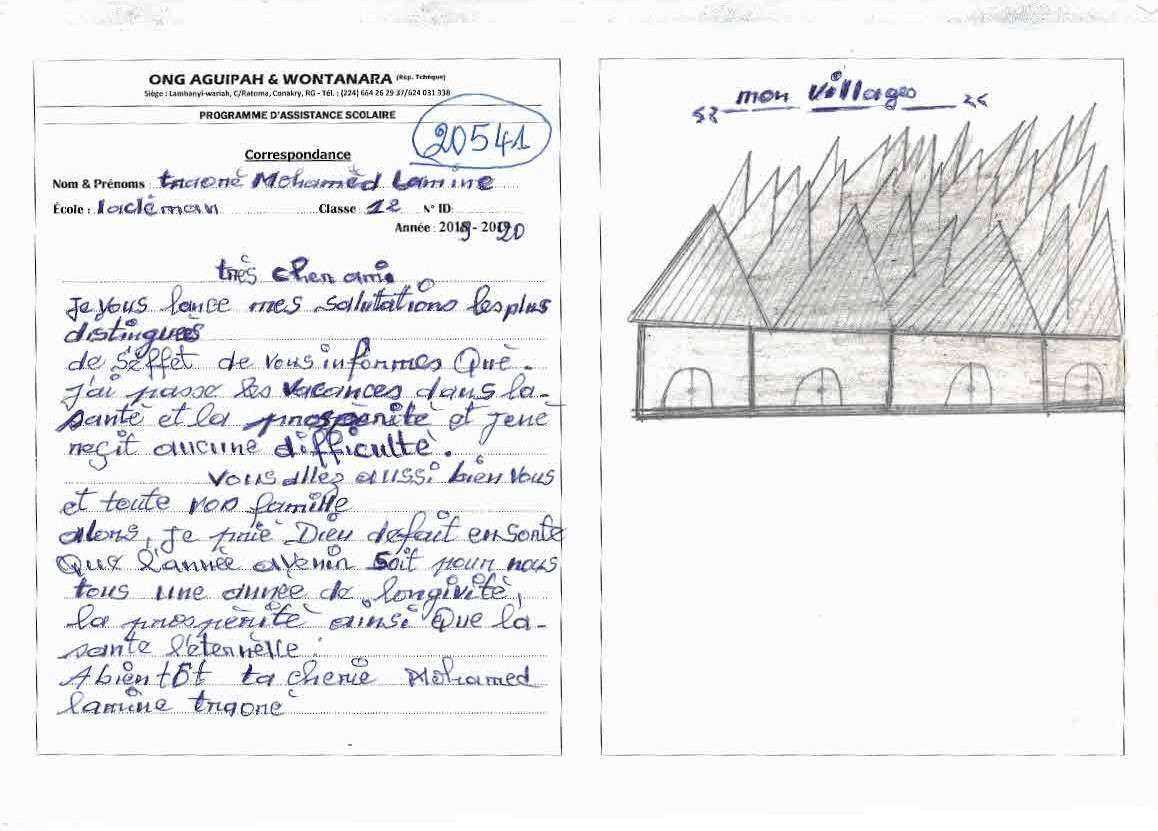 ONG AGUIPAH & WONTANARA (Rép. Tchèque)
Siège : Lambanyi-wariah, C/Ratoma, Conakry, RG - Tél. : (224) 664 26 29 37/624 031 338
PROGRAMME D'ASSISTANCE SCOLAIRE
20541
Correspondance
Nom & Prénoms : traoré Mohamèd Lamine
École : Classe : 12 N° ID:
Année : 2019 - 2020
très cher ami
Je vous lance mes salutations les plus
distinguées
de s'effet de vous informes Que
j'ai passe les vacances dans la-
santè et la prospèritè et Jenè
reçit aucune difficultè.
vous allez aussi bien vous
et toute vos famille
alors, je priè Dieu defait ensorte
Que l'année avenir soit pour nous
tous une année de longivitè,
la prospèritè ainsi Que la-
sante l'éternèlle.
AbientÔt ta cherie Mohamed
lamine traoré
mon villages